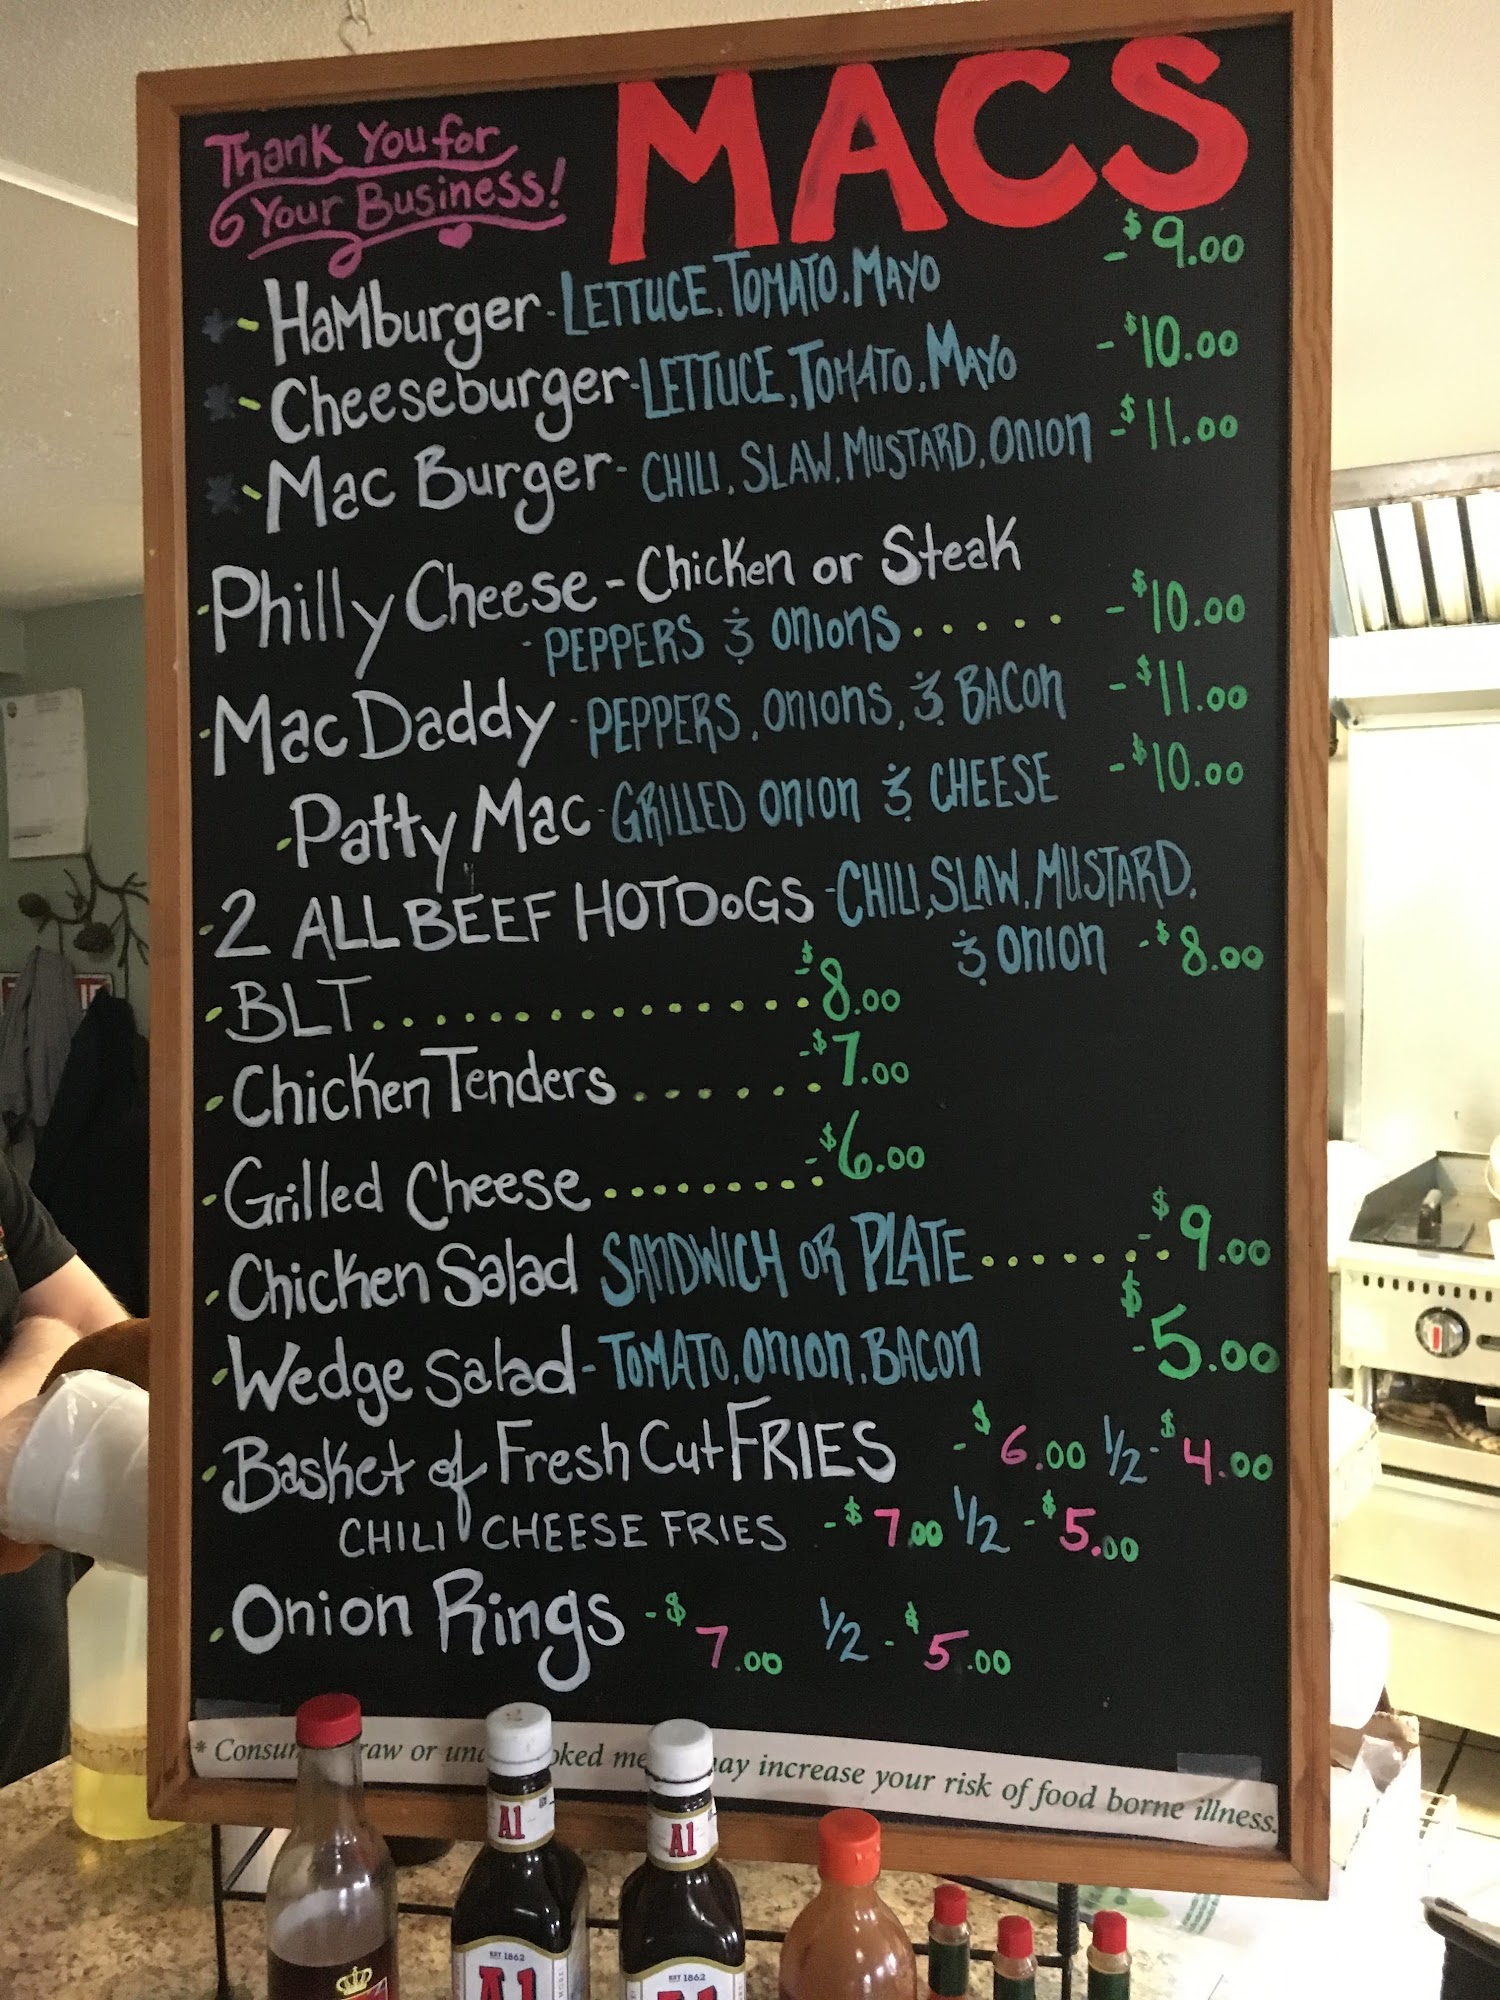 Thank You for
Your Business!
MACS
* - Hamburger - LETTUCE, TOMATO, MAYO - $9.00
* - Cheeseburger - LETTUCE, TOMATO, MAYO - $10.00
* - Mac Burger - CHILI, SLAW, MUSTARD, ONION - $11.00
Philly Cheese - Chicken or Steak
- PEPPERS & ONIONS ..... - $10.00
Mac Daddy - PEPPERS, ONIONS, & BACON - $11.00
Patty Mac - GRILLED ONION & CHEESE - $10.00
2 ALL BEEF HOTDOGS - CHILI, SLAW, MUSTARD,
& ONION - $8.00
BLT ............... - $8.00
Chicken Tenders ....... - $7.00
Grilled Cheese .......... - $6.00
Chicken Salad SANDWICH OR PLATE ....... - $9.00
Wedge Salad - TOMATO, ONION, BACON - $5.00
Basket of Fresh Cut FRIES - $6.00 1/2 - $4.00
CHILI CHEESE FRIES - $7.00 1/2 - $5.00
Onion Rings - $7.00 1/2 - $5.00
* raw or may increase your risk of food borne illness.
A1 A1
EST 1862 EST 1862
A1 A1